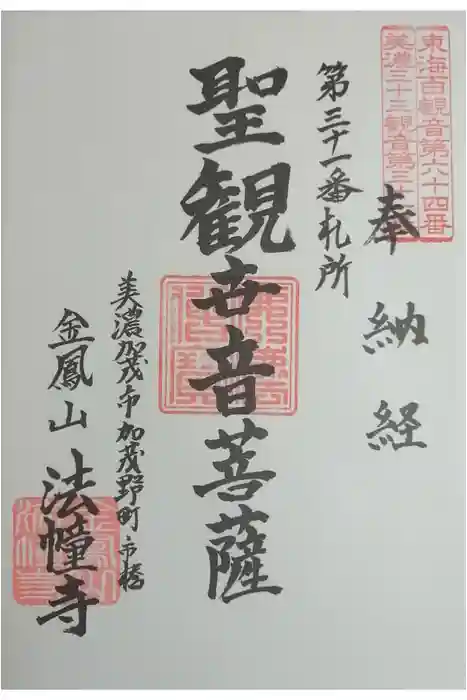 東海百観音第六十四番
美濃三十三観音第三十
奉納経
第三十一番札所
聖観世音菩薩
美濃加茂市加茂野町市橋
金鳳山 法幢寺